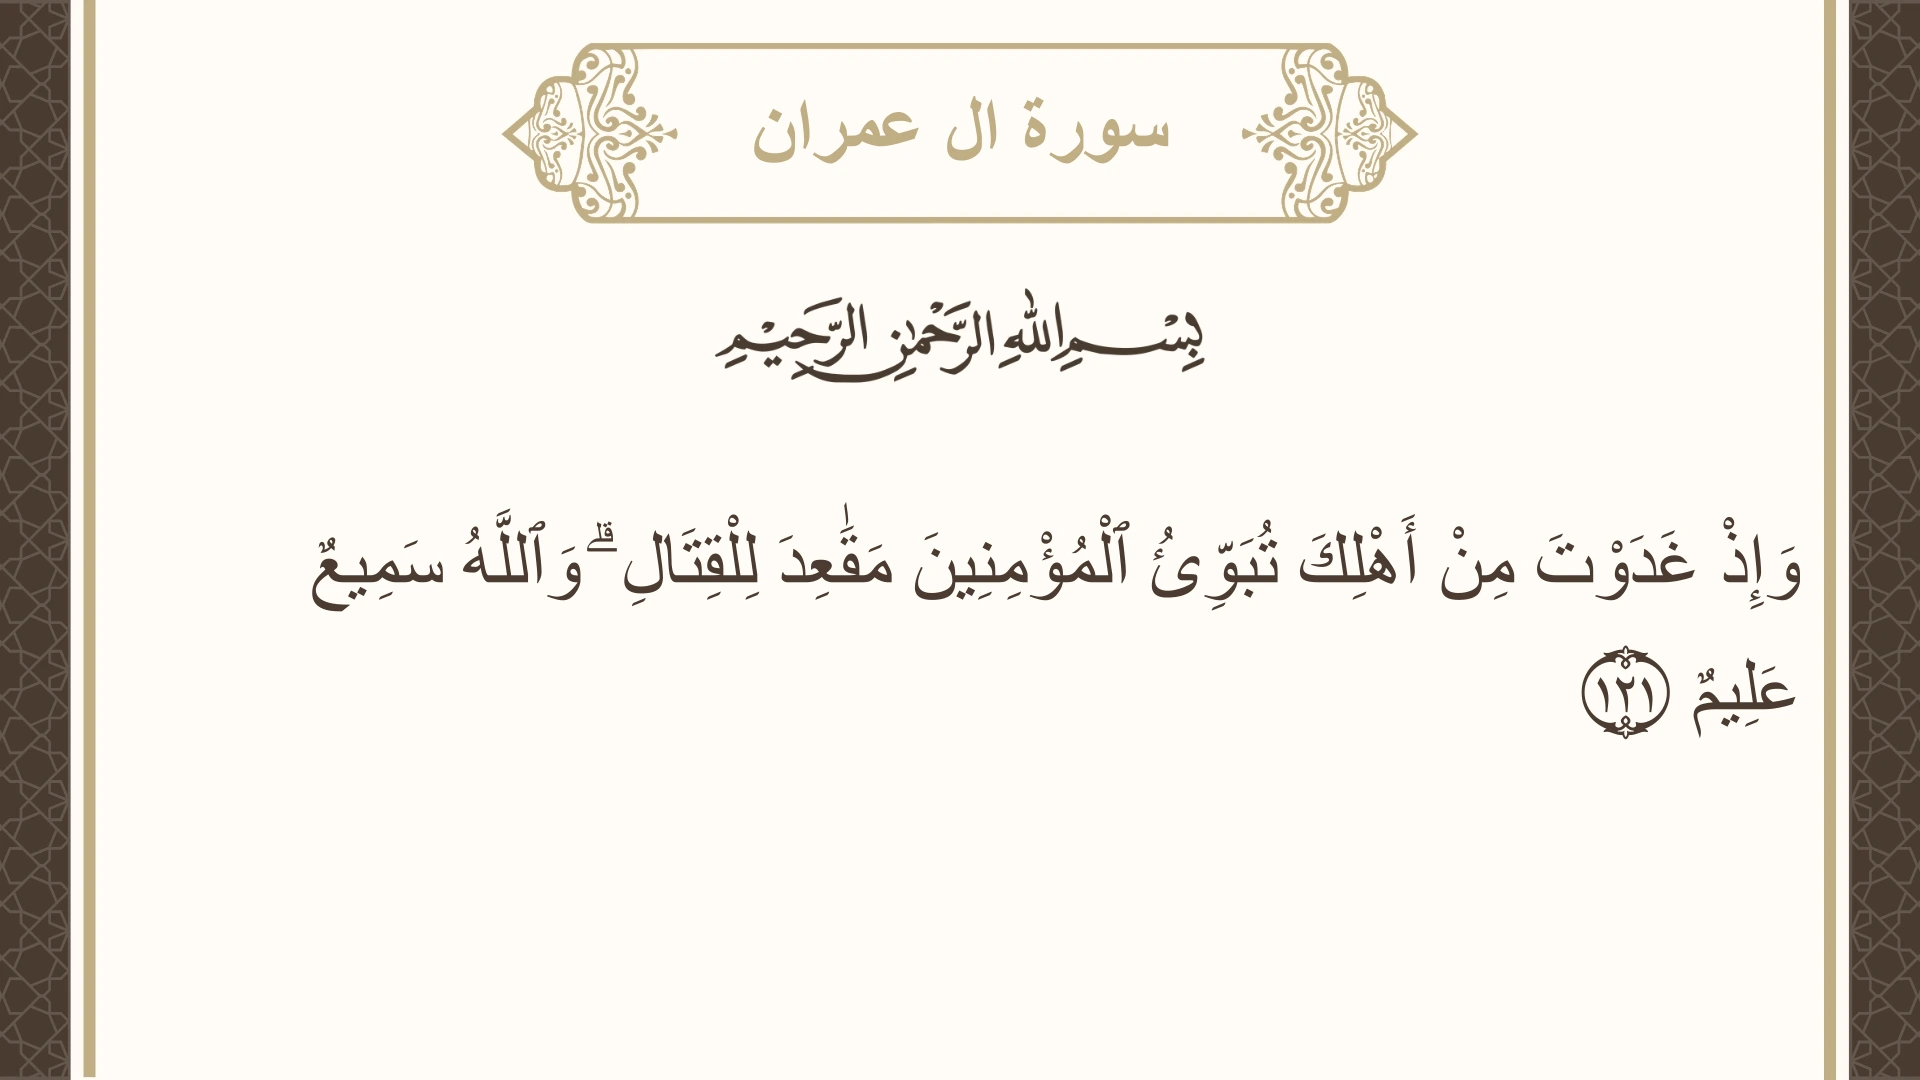 سورة ال عمران
بِسْمِ اللهِ الرَّحْمٰنِ الرَّحِيْمِ
وَإِذْ غَدَوْتَ مِنْ أَهْلِكَ تُبَوِّئُ ٱلْمُؤْمِنِينَ مَقَٰعِدَ لِلْقِتَالِ ۗ وَٱللَّهُ سَمِيعٌ
عَلِيمٌ ١٢١